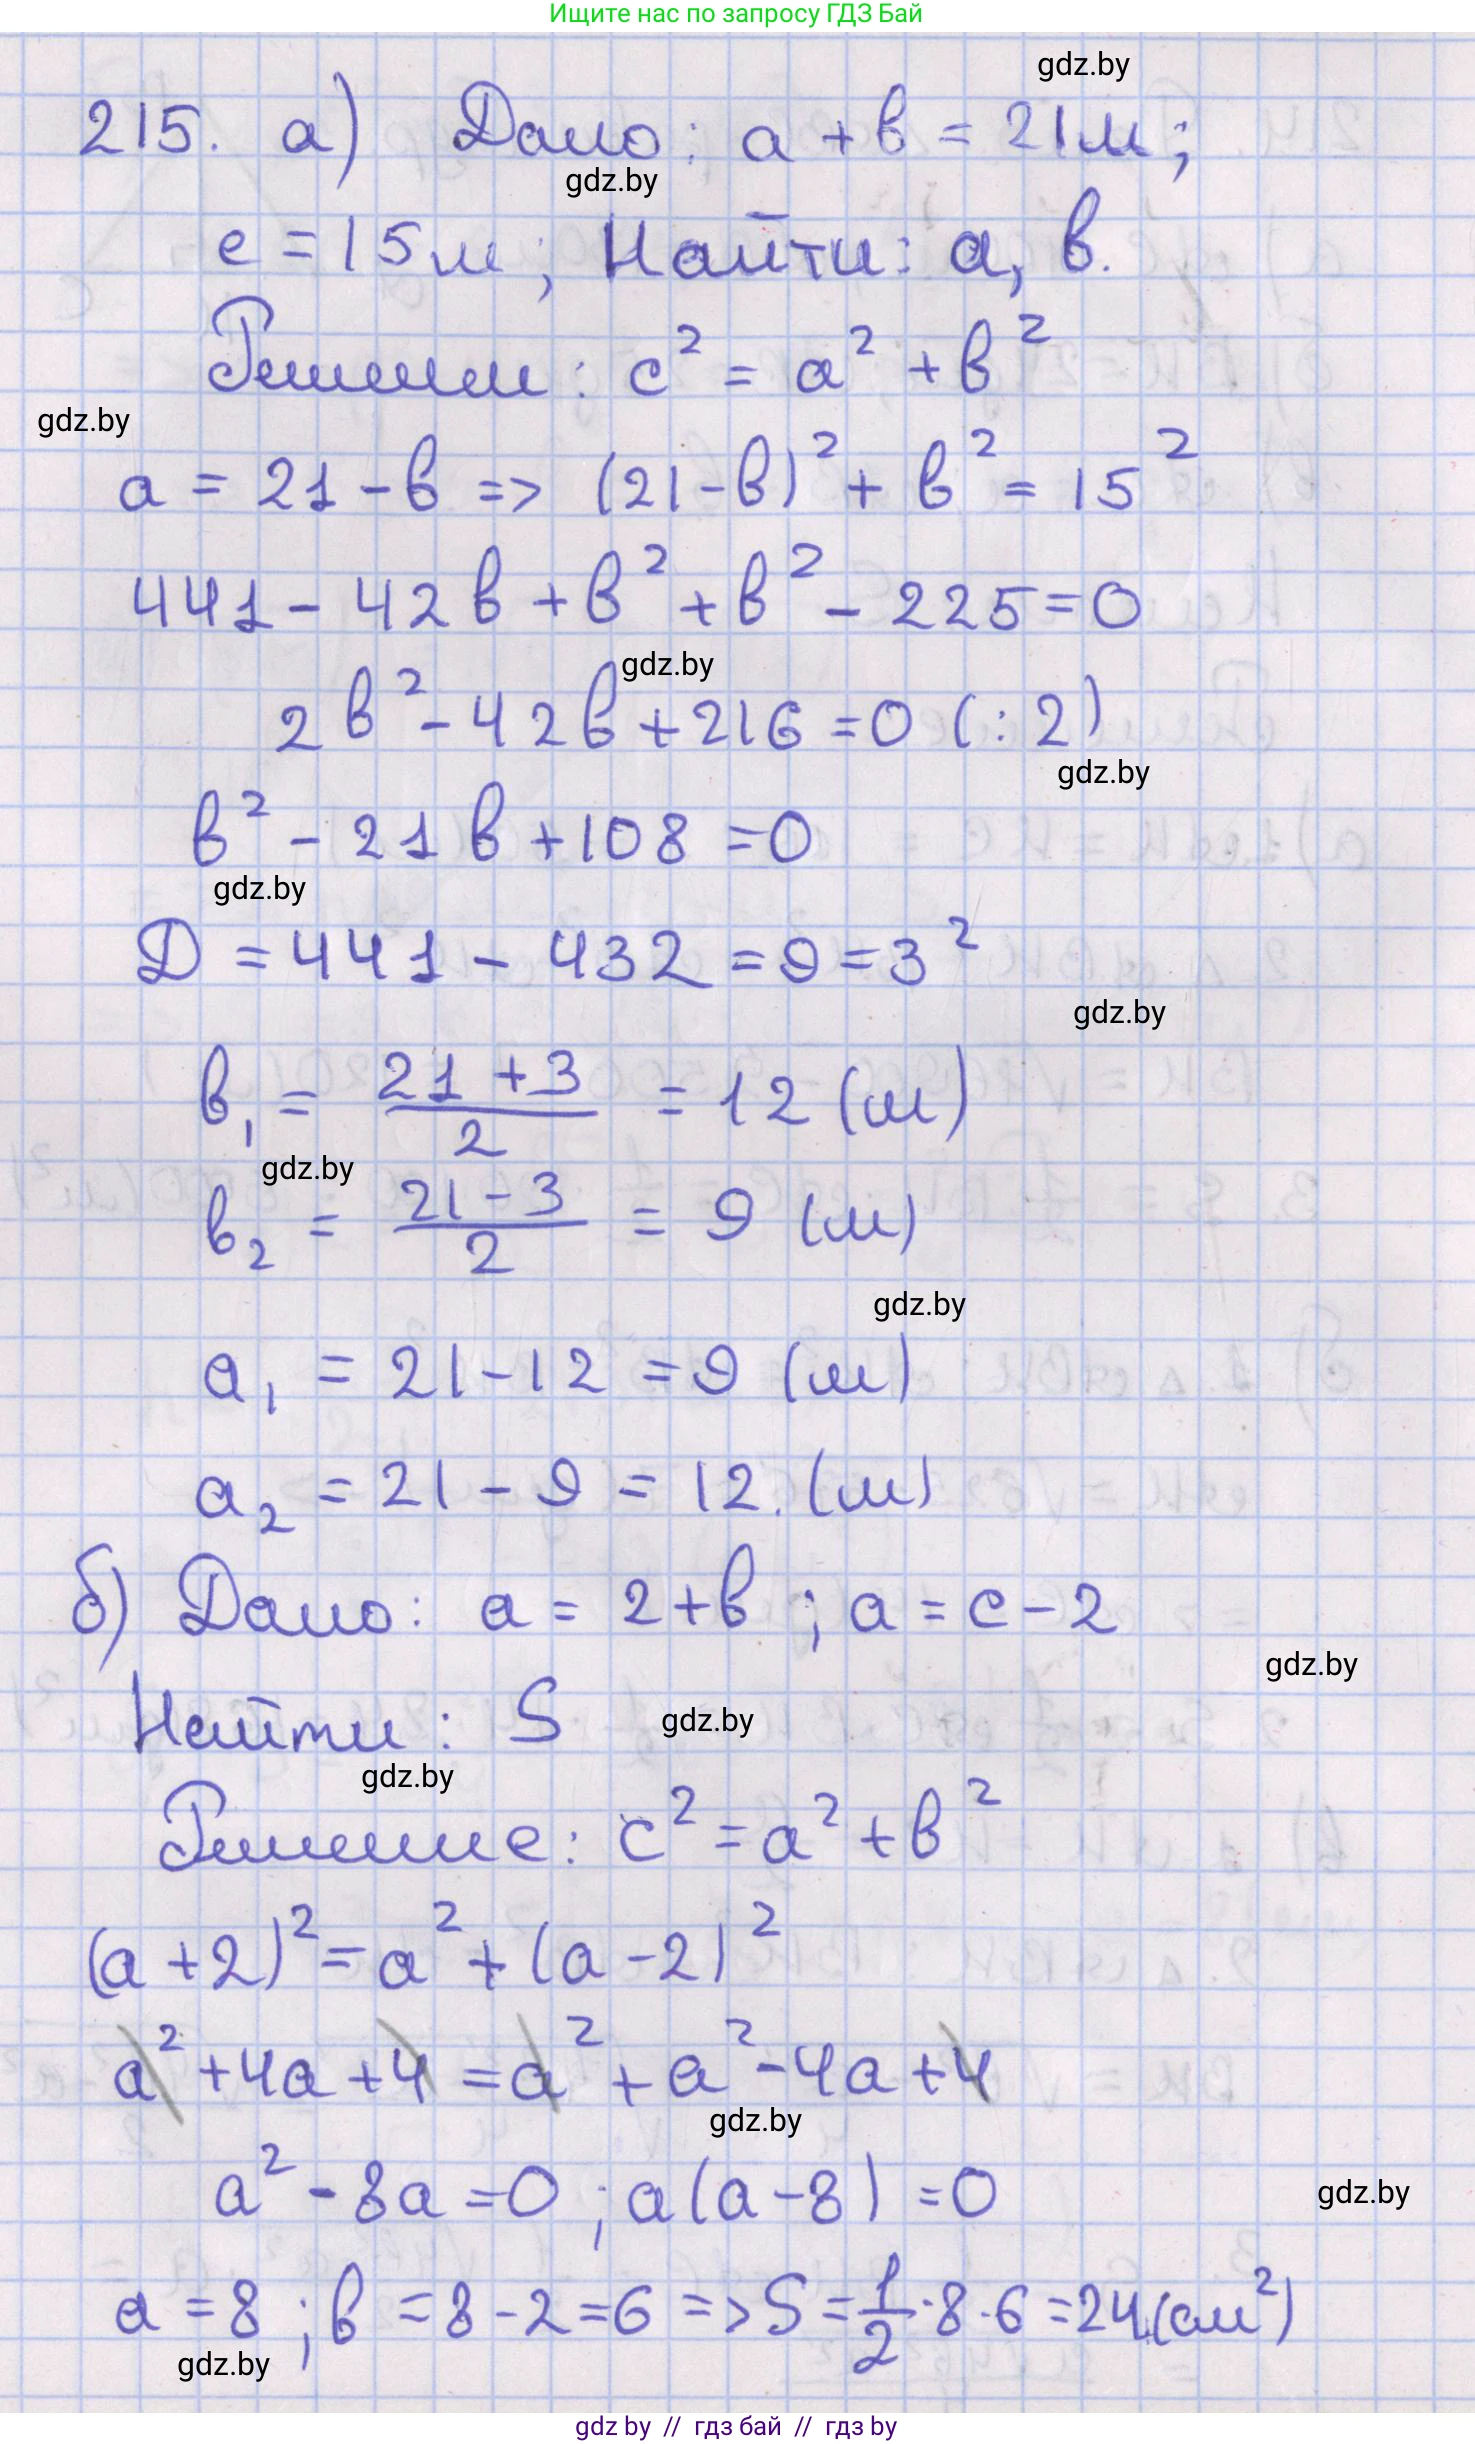 Ищите нас по запросу ГДЗ Бай
gdz.by
215. а) Дано: a + в = 21м;
gdz.by
c = 15м; Найти: а, в.
Решение: c² = a² + в²
gdz.by
a = 21 - в => (21-в)² + в² = 15²
441 - 42в + в² + в² - 225 = 0
gdz.by
2в² - 42в + 216 = 0 (:2)
gdz.by
в² - 21в + 108 = 0
gdz.by
Д = 441 - 432 = 9 = 3²
gdz.by
в₁ = (21 + 3)/2 = 12 (м)
gdz.by
в₂ = (21 - 3)/2 = 9 (м)
gdz.by
a₁ = 21 - 12 = 9 (м)
a₂ = 21 - 9 = 12. (м)
б) Дано: a = 2 + в; a = c - 2
gdz.by
Найти: S
gdz.by
gdz.by
Решение: c² = a² + в²
(a + 2)² = a² + (a - 2)²
a² + 4a + 4 = a² + a² - 4a + 4
gdz.by
a² - 8a = 0; a(a - 8) = 0
gdz.by
a = 8; в = 8 - 2 = 6 => S = 1/2 · 8 · 6 = 24 (см²)
gdz.by
gdz by // гдз бай // гдз by